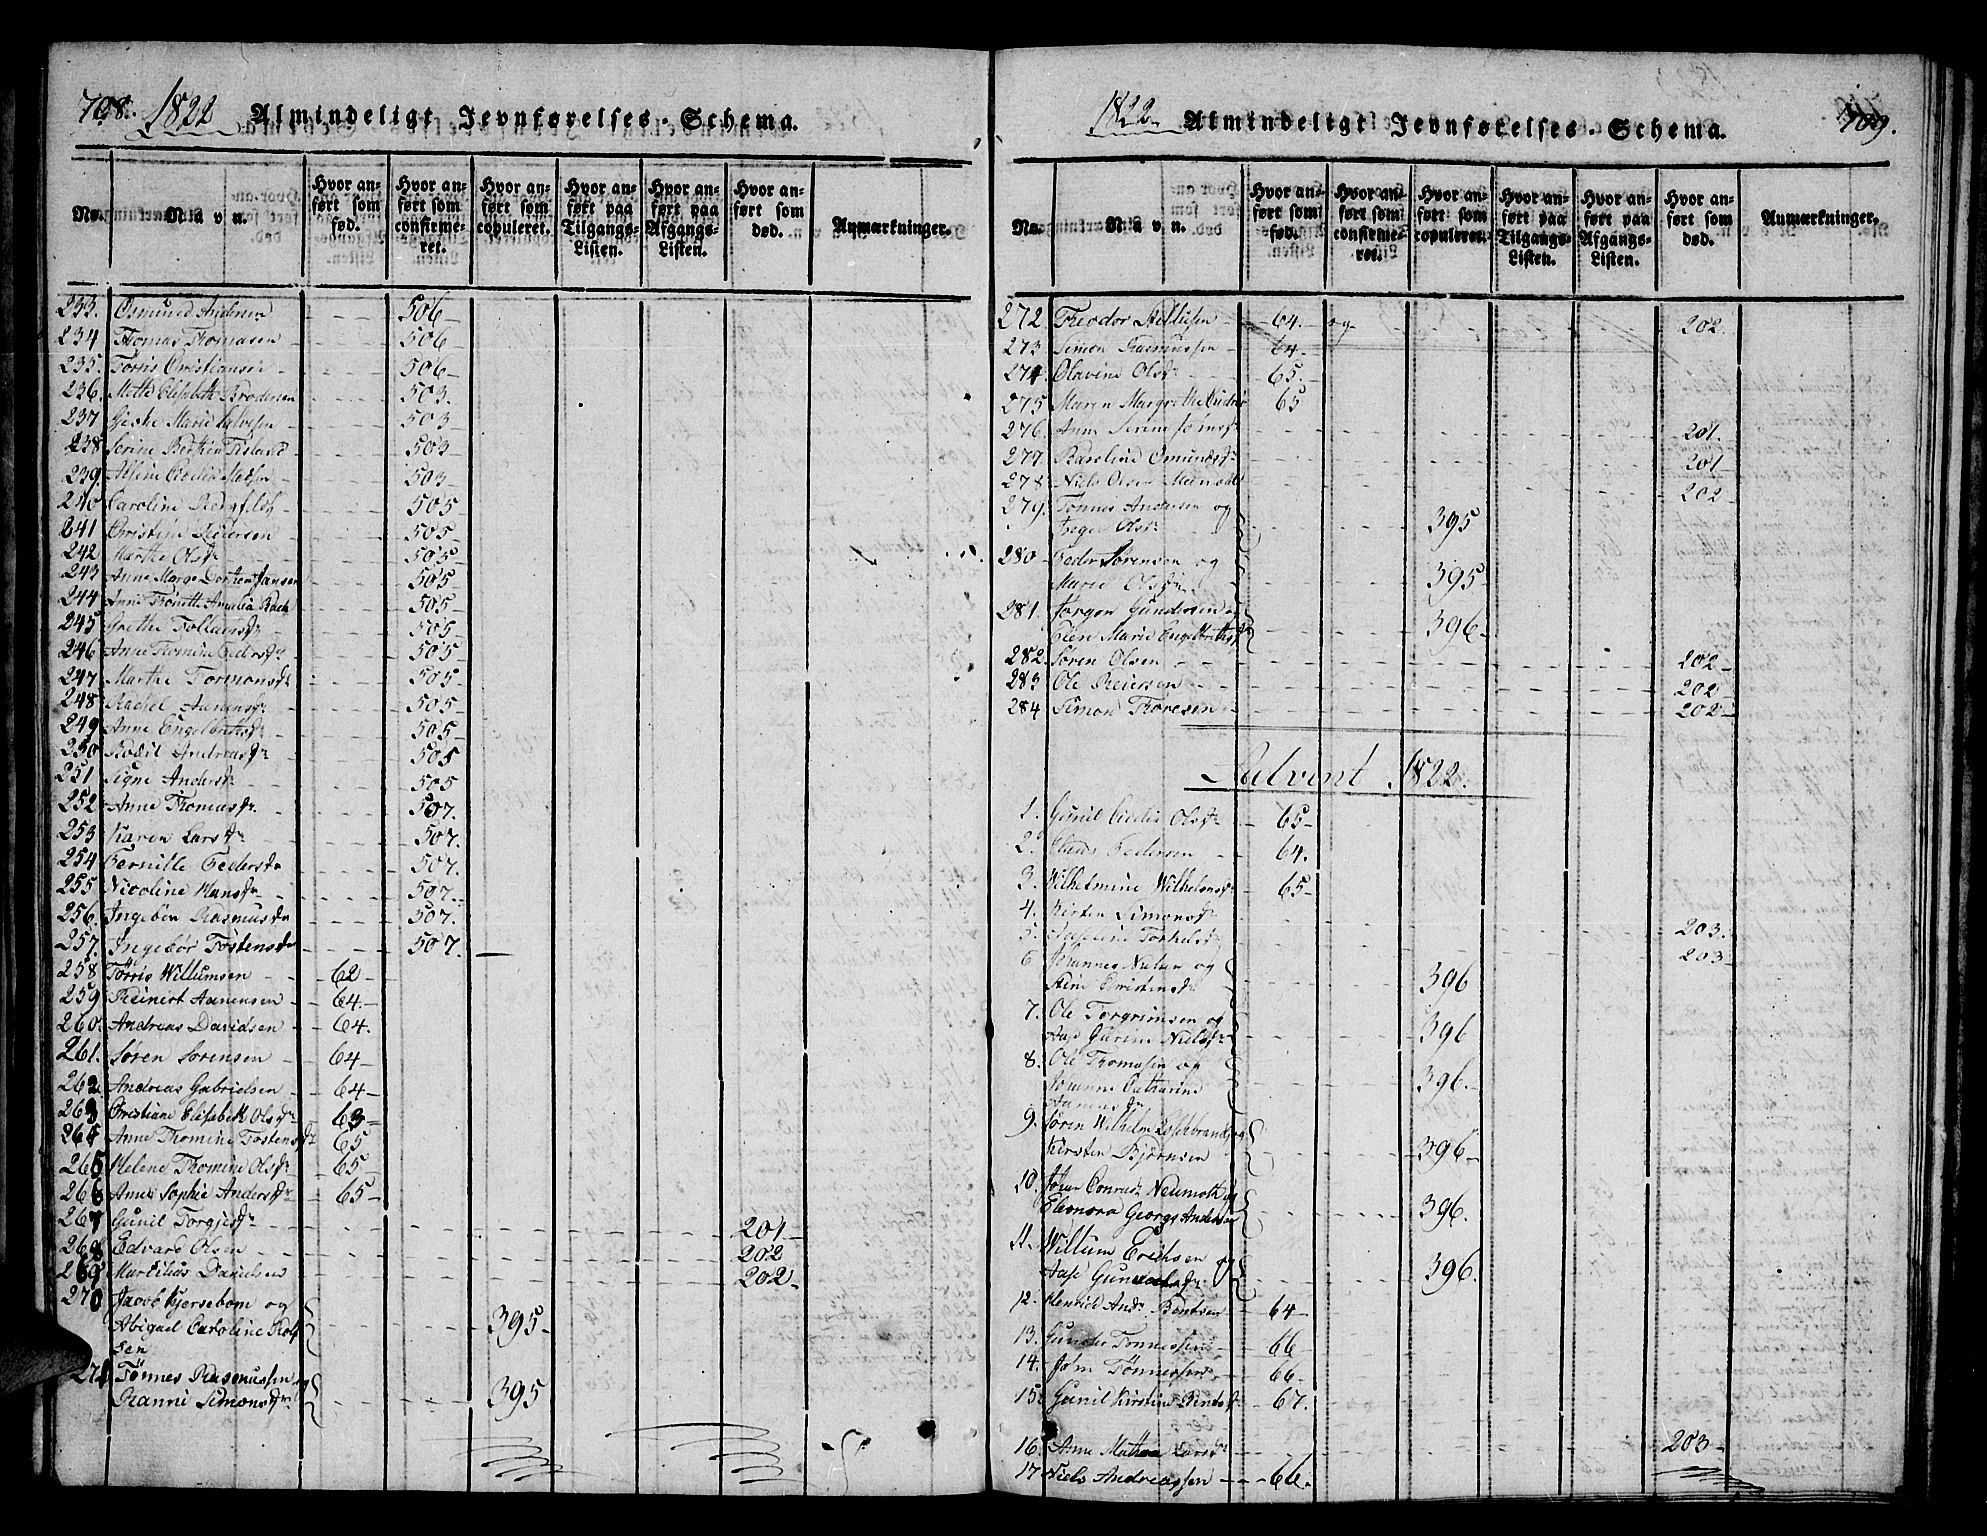 708. 1822 Almindeligt Jevnførelses-Schema.
No. Navn. Hvor anført som fød. Hvor anført som confirmeret. Hvor anført som copuleret. Hvor anført paa Tilgangs-Listen. Hvor anført paa Afgangs-Listen. Hvor anført som død. Anmærkninger.
233. Osmund Andersen 506
234 Thomas Thomasen 506
235. Törris Christiansen 506
236. Mette Elisabeth Brodersen 503.
237 Giske Marie 503
238 Serine 503
239. 503
240 Caroline 505
241 Christine Pedersen 505
242 Marthe Olsdr 505
243 Anne Marge Dorthea Jansen 505
244 Anne Tönette Amalia Bach 505
245 Grethe Tollaksdr 505
246 Anne Thomine Pedersdr 505
247 Marthe Tormonsdr 505
248 Rachel Aanensdr 505
249. Anne Engelbretsdr 505
250 Bodil Andreasdr 505
251 Signe Andersdr 505
252. Anne Thomasdr. 507.
253 Karen Larsdr 507.
254 Pernille Pedersdr 507.
255 Nicoline Hansdr 507.
256. Ingebör Rasmusdr 507.
257. Ingebör Tostensdr 507.
258 Törris Willumsen 62
259 Reinert Aanensen 64.
260. Andreas Davidsen 64.
261. Sören Sörensen 64
262 Andreas Gabrielsen 64
263 Christiane Elisabeth Olsdr 63
264 Anne Thomine Tostensdr 65
265 Helene Thomine Olsdr 65
266 Anne Sophie Andersdr 65
267 Gunil Torgjesdr 201
268 Edvard Olsen 202
269 Martilius Danielsen 202
270 Jacob Kjersebom og
Abigael Caroline Rolf
sen 395
271 Tönnes Rasmussen og
Ranni Simonsdr 395
1822. Almindeligt Jevnførelses-Schema. 709.
No. Navn. Hvor anført som fød. Hvor anført som confirmeret. Hvor anført som copuleret. Hvor anført paa Tilgangs-Listen. Hvor anført paa Afgangs-Listen. Hvor anført som død. Anmærkninger.
272. Theodor 64. og 202.
273 Simon Rasmussen 64.
274 Olavine Olsdr 65.
275 Maren Margrethe 65
276. Anne Serine 201.
277 Karoline Osmundsdr 201
278 Niels Olsen 202
279. Tönnes Andersen og
Inger Olsdr 395
280 Peder Sörensen og
Marie Olsdr 395
281. Jörgen Gundersen og
Ellen Marie Engelbretsdr 396
282. Sören Olsen 202
283 Ole Reiersen 202
284 Simon Thoresen 202
Advent 1822.
1. Gunil Olsdr 65
2. Claus Pedersen 64.
3. Wilhelmine Wilhelmsdr 65
4. Kirsten Simonsdr 203.
5. Torkelsdr 203
6 Johannes Nielsen og
Stine Christensdr 396
7. Ole Torgrimsen og
Aase Gurine Nielsdr 396
8. Ole Thomasen og
Johanne Catharine
Aanensdr 396.
9. Sören Wilhelm og
Kirsten Björnsen 396
10. Johan Conrad Neumoth og
Eleonora Georg Andersen 396.
11. Willum Eriksen og
Aase 396.
12. Henrich Andr. Bentsen 64
13. Gunder Tönnessen 66
14. John Tönnessen 66
15. Gunil Kirstine 67.
16. Anne Larsdr 203
17. Niels Andreassen 66.